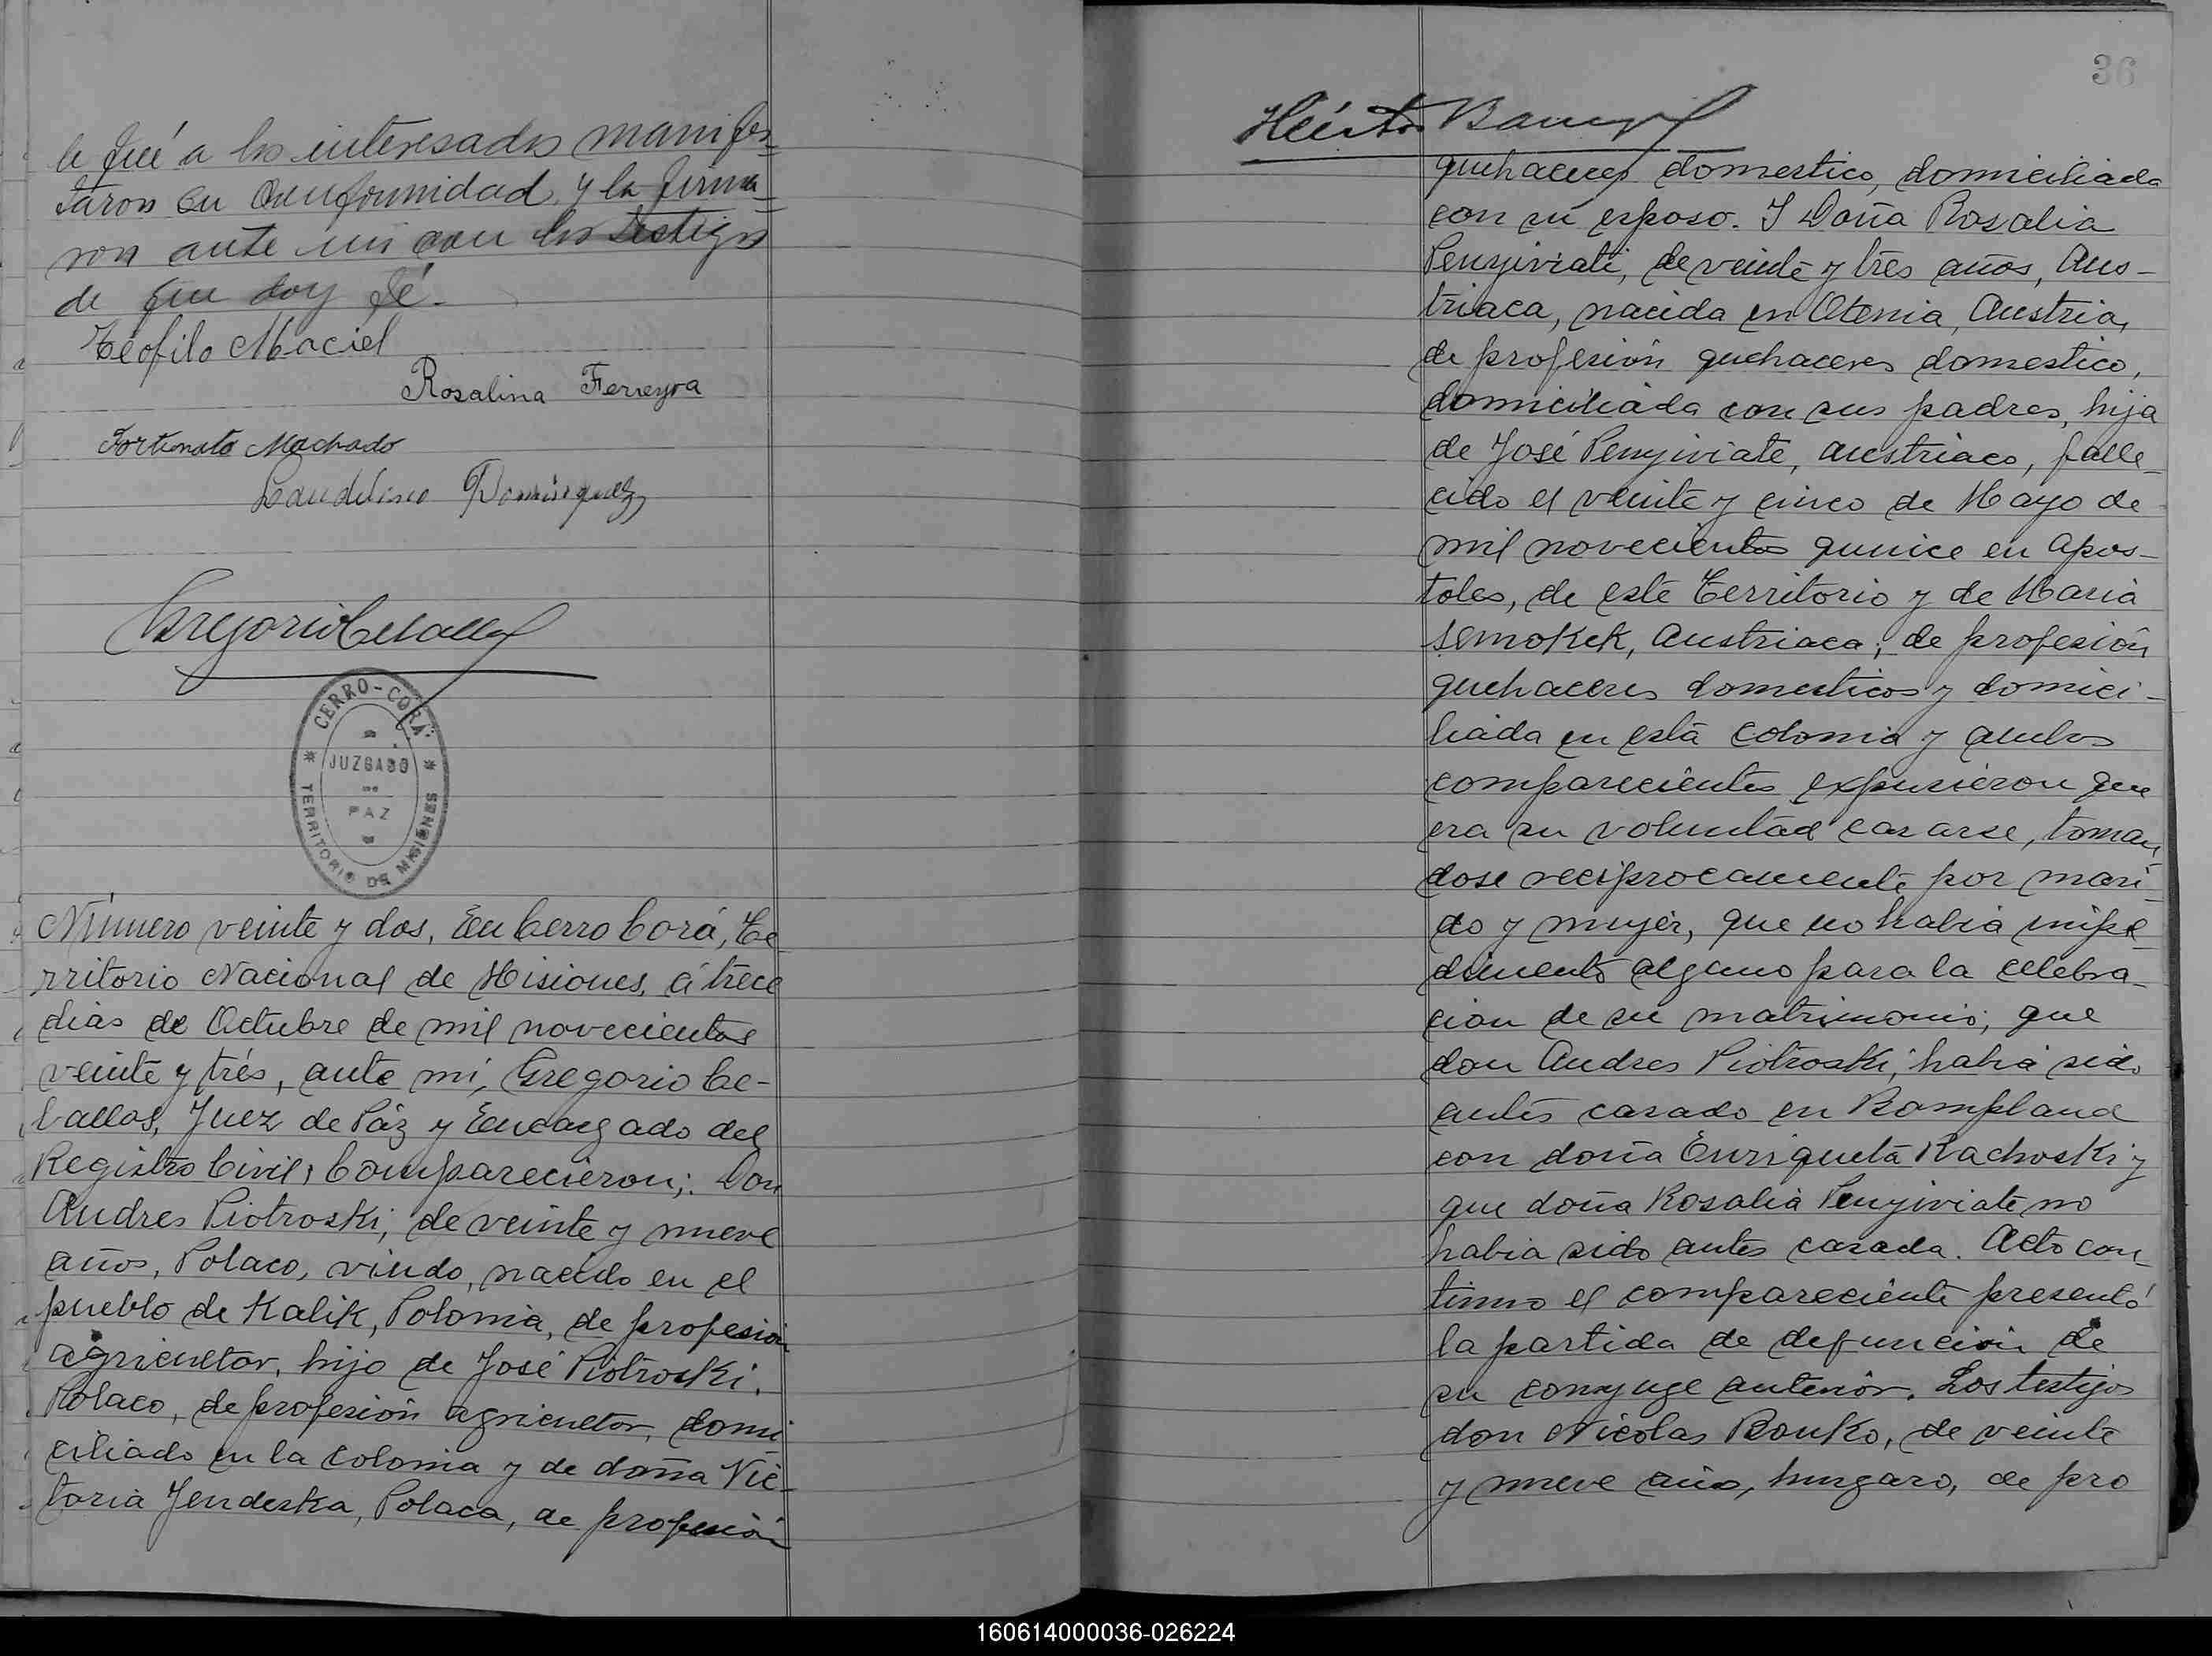 le fué a los interesados manifes_
taron su conformidad y la firma_
ron ante mi con los testigos
de que doy fé.
Teófilo Maciel
Rosalina Ferreyra
Fortunato Machado
Laudelino Dominguez
Gregorio Ceballos
CERRO-CORÁ
JUZGADO
DE
PAZ
TERRITORIO DE MISIONES
Número veinte y dos, En Cerro Corá, Te
rritorio Nacional de Misiones, á trece
dias de Octubre de mil novecientos
veinte y trés, ante mi, Gregorio Ce-
ballos, Juez de Páz y Encargado del
Registro Civil, Comparecieron; Don
Andres Piotroski, de veinte y nueve
años, Polaco, viudo, nacido en el
pueblo de Kalik, Polonia, de profesión
agricultor, hijo de José Piotroski,
Polaco, de profesión agricultor, domi_
ciliado en la colonia y de doña Vic_
toria Jendeska, Polaca, de profesión
36
Héctor
quehaceres domestico, domiciliada
con su esposo. Y Doña Rosalia
Penyiviati, de veinte y tres años, Aus_
triaca, nacida en Otenia, Austria,
de profesión quehaceres domestico,
domiciliada con sus padres, hija
de José Penyiviate, austriaco, falle_
cido el veinte y cinco de Mayo de
mil novecientos quince en Apos_
toles, de este Territorio y de Maria
Semokek, Austriaca; de profesión
quehaceres domesticos y domici_
liada en esta colonia y ambos
comparecientes expusieron que
era su voluntad casarse, toman_
dose reciprocamente por mari_
do y mujer, que no habia impe_
dimento alguno para la celebra_
cion de su matrimonio; que
don Andres Piotroski, habia sido
antes casado en Bompland
con doña Enriqueta Rachoski y
que doña Rosalia Penyiviate no
habia sido antes casada. Acto con_
tinuo el compareciente presentó
la partida de defuncion de
su conyuge anterior. Los testigos
don Nicolas Bouko, de veinte
y nueve años, hungaro, de pro
160614000036-026224